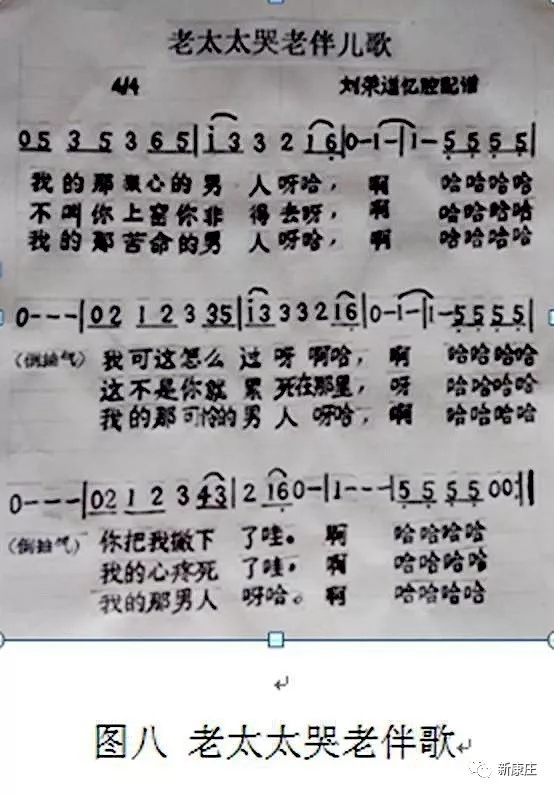 老太太哭老伴儿歌
4/4 刘荣道忆腔配谱
05 35 3 65 | i3 3 2 16 | 0-1- | 1- 5 5 5 5 |
我的那狠心的男人呀哈，啊 哈哈哈哈
不叫你上窑你非得去呀，啊 哈哈哈哈
我的那苦命的男人呀哈，啊 哈哈哈哈
0--- | 02 12 3 35 | i3 3 3 2 16 | 0-1- | 1- 5 5 5 5 |
（倒抽气） 我可这怎么过呀啊哈，啊 哈哈哈哈
这不是你就累死在那里，呀 哈哈哈哈
我的那可怜的男人呀哈，啊 哈哈哈哈
0--- | 02 1 2 3 43 | 2 16 0- | 1--- | 5 5 5 5 00 :||
（倒抽气） 你把我撇下了哇。啊 哈哈哈哈
我的心疼死了哇。啊 哈哈哈哈
我的那男人呀哈。啊 哈哈哈哈
图八 老太太哭老伴歌
新康庄